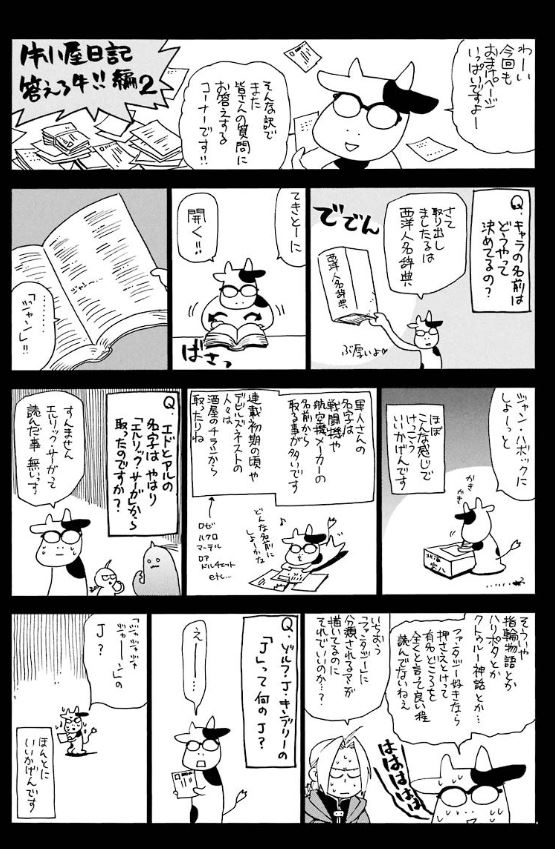 わーい
今回も
おまけページ
いっぱいですよー
そんな訳で
また
皆さんの質問に
お答えする
コーナーです!!
牛小屋日記
答えろ牛!!編2
Q.キャラの名前は
どうやって
決めてるの?
さて
取り出し
ましたるは
西洋人名辞典
ででん
西洋人名辞典
ぶ厚いよ
てきとーに
開く!!
ばさっ
「ジャン」!!
ジャン・ハボックに
しよーっと
かき
かき
ほぼ
こんな感じで
けっこう
いいかげんです
軍人さんの
名字は
戦闘機や
航空機メーカーの
名前から
取る事が多いです
連載初期の頃や
デビルズネストの
人々は
酒屋のチラシから
取ったりね
どんな名前に
しよーかな
♪
ロゼ
ハクロ
マーテル
ロア
ドルチェット
etc…
Q.エドとアルの
名字はやはり
「エルリック・サーガ」から
取ったのですか?
すんません
エルリック・サーガって
読んだ事 無いっす
そういや
指輪物語とか
ハリポタとか
クトゥルー神話とか…
ファンタジー好きなら
押さえとけって
有名どころを
全くと言って良い程
読んでないねえ
はははははは
いちおう
「ファンタジー」に
分類されるマンガ
描いてるのに
それでいいのか…?
Q.ゾルフ・J・キンブリーの
「J」って何のJ?
えーーー
「ジャジャ
ジャーーン」の
J?
ほんとに
いいかげんです